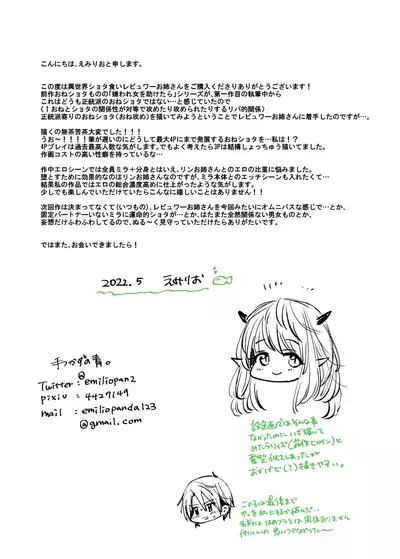 こんにちは、えみりおと申します。
この度は異世界ショタ食いレビュワーお姉さんをご購入くださりありがとうございます！
前作おねショタものの「嫌われ女を助けたら」シリーズが、第一作目の執筆中から
これはどうも正統派のおねショタではない…と感じていたので
(↑おねとショタの関係性が対等で攻めたり攻められたりするリバ的関係)
正統派寄りのおねショタ(おね攻め)を描いてみようということでレビュワーお姉さんに着手したのですが…。
描くの無茶苦茶大変でした！！
うお～！！！！筆が遅いのにどうして最大4Pにまで発展するおねショタを…私は！？
4Pプレイは過去最高人数な気がします。でもよく考えてみると3Pは結構しょっちゅう描いてました。
作画コストの高い性癖を持っているな…
作中エロシーンでは全員ミラ＋分身とはいえ、リンお姉さんとのエロの比重に悩みました。
堕とすために効果的なのはリンお姉さんなのですが、ミラ本体とのエッチシーンも入れたくて…
結果私の作品ではエロの総合濃度高めに仕上がったような気がします。
少しでも楽しんでいただけていたらこんなに嬉しいことはありません！
次回作は決まってなくて(いつもの)、レビュワーお姉さんを今回みたいにオムニバスな感じで…とか、
固定パートナーいないミラに運命的ショタが…とか、はたまた全然関係ない男女ものとか、
妄想だけふわふわしてるので、ぬる～く見守っていただけたらありがたいです。
ではまた、お会いできましたら！
2022.5 えみりお
わかずの青。
Twitter : emiliopan2
pixiv : 4427149
mail : emiliopanda123
@gmail.com
設定画ではそんな事
なかったのにいざ描いて
みたらリイズ(前作ヒロイン)と
髪型似てしまったが
おかげで(?)描きやすい。